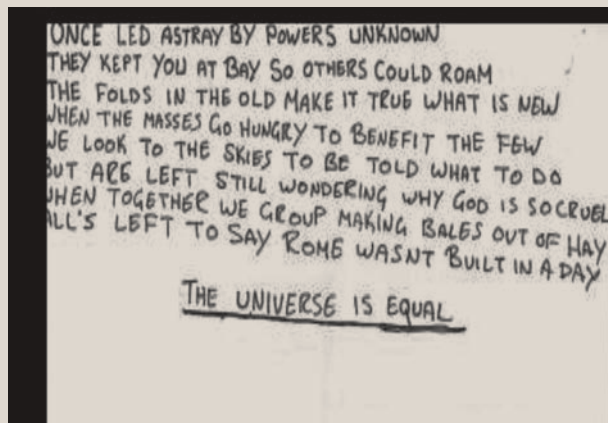 ONCE LED ASTRAY BY POWERS UNKNOWN
THEY KEPT YOU AT BAY SO OTHERS COULD ROAM
THE FOLDS IN THE OLD MAKE IT TRUE WHAT IS NEW
WHEN THE MASSES GO HUNGRY TO BENEFIT THE FEW
WE LOOK TO THE SKIES TO BE TOLD WHAT TO DO
BUT ARE LEFT STILL WONDERING WHY GOD IS SO CRUEL
WHEN TOGETHER WE GROUP MAKING BALES OUT OF HAY
ALL'S LEFT TO SAY ROME WASNT BUILT IN A DAY
THE UNIVERSE IS EQUAL